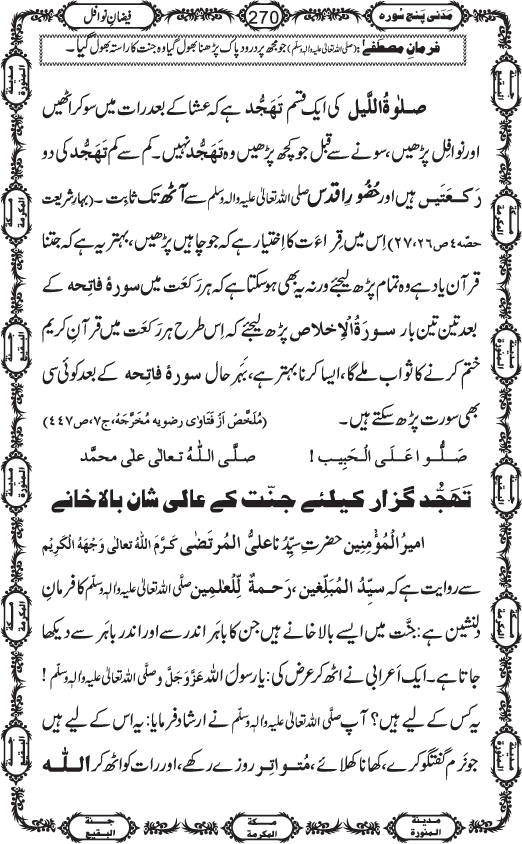 مَدَنی پَنج سُورہ 270 فیضانِ نوافل
فرمانِ مصطفےٰ :(صلی اللہ تعالیٰ علیہ والہ وسلّم) جو مجھ پر درودِ پاک پڑھنا بھول گیا وہ جنت کا راستہ بھول گیا۔
صلوٰۃُ اللَّیل کی ایک قسم تَھَجُّد ہے کہ عشا کے بعد رات میں سو کر اٹھیں
اور نوافِل پڑھیں، سونے سے قبل جو کچھ پڑھیں وہ تَھَجُّد نہیں۔ کم سے کم تَھَجُّد کی دو
رَکعَتیں ہیں اور حُضُورِ اقدس صلی اللہ تعالیٰ علیہ والہ وسلم سے آٹھ تک ثابِت۔ (بہارِ شریعت
حصّہ ۴ ص ۲۶،۲۷) اِس میں قِراءَت کا اِختیار ہے کہ جو چاہیں پڑھیں، بہتر یہ ہے کہ جتنا
قرآن یاد ہے وہ تمام پڑھ لیجئے ورنہ یہ بھی ہوسکتا ہے کہ ہر رَکعَت میں سورۂ فاتِحہ کے
بعد تین تین بار سورَۃُ الْاِخلاص پڑھ لیجئے کہ اِس طرح ہر رَکعَت میں قرآنِ کریم
ختم کرنے کا ثواب ملے گا، ایسا کرنا بہتر ہے، بَہَر حال سورۂ فاتِحہ کے بعد کوئی سی
بھی سورت پڑھ سکتے ہیں۔ (مُلَخَّص اَز فَتاوٰی رضویہ مُخَرَّجَہ، ج۷، ص۴۴۷)
صَلُّوا عَلَی الْحَبِیب ! صلَّی اللہُ تعالٰی علٰی محمَّد
تَھَجُّد گزار کیلئے جنّت کے عالی شان بالاخانے
امیرُ الْمُؤْمِنِین حضرتِ سیِّدُنا علیُّ الْمُرتَضٰی کَرَّمَ اللہُ تعالٰی وَجْھَہُ الْکَرِیْم
سے روایت ہے کہ سیِّدُ الْمُبَلِّغِین، رَحمۃٌ لِّلْعٰلَمِین صلَّی اللہ تعالیٰ علیہ والہٖ وسلَّم کا فرمانِ
دلنشین ہے: جنَّت میں ایسے بالا خانے ہیں جن کا باہَر اندر سے اور اندر باہَر سے دیکھا
جاتا ہے۔ ایک اَعرابی نے اٹھ کر عرض کی: یارسولَ اللہ عَزَّوَجَلَّ وصلَّی اللہ تعالیٰ علیہ والہٖ وسلّم !
یہ کس کے لیے ہیں؟ آپ صلی اللہ تعالیٰ علیہ والہ وسلَّم نے ارشاد فرمایا: یہ اس کے لیے ہیں
جو نَرم گفتگو کرے، کھانا کھلائے، مُتَواتِر روزے رکھے، اور رات کو اٹھ کر اللہ
مدینۃ المنورۃ
مکۃ المکرمۃ
جنۃ البقیع